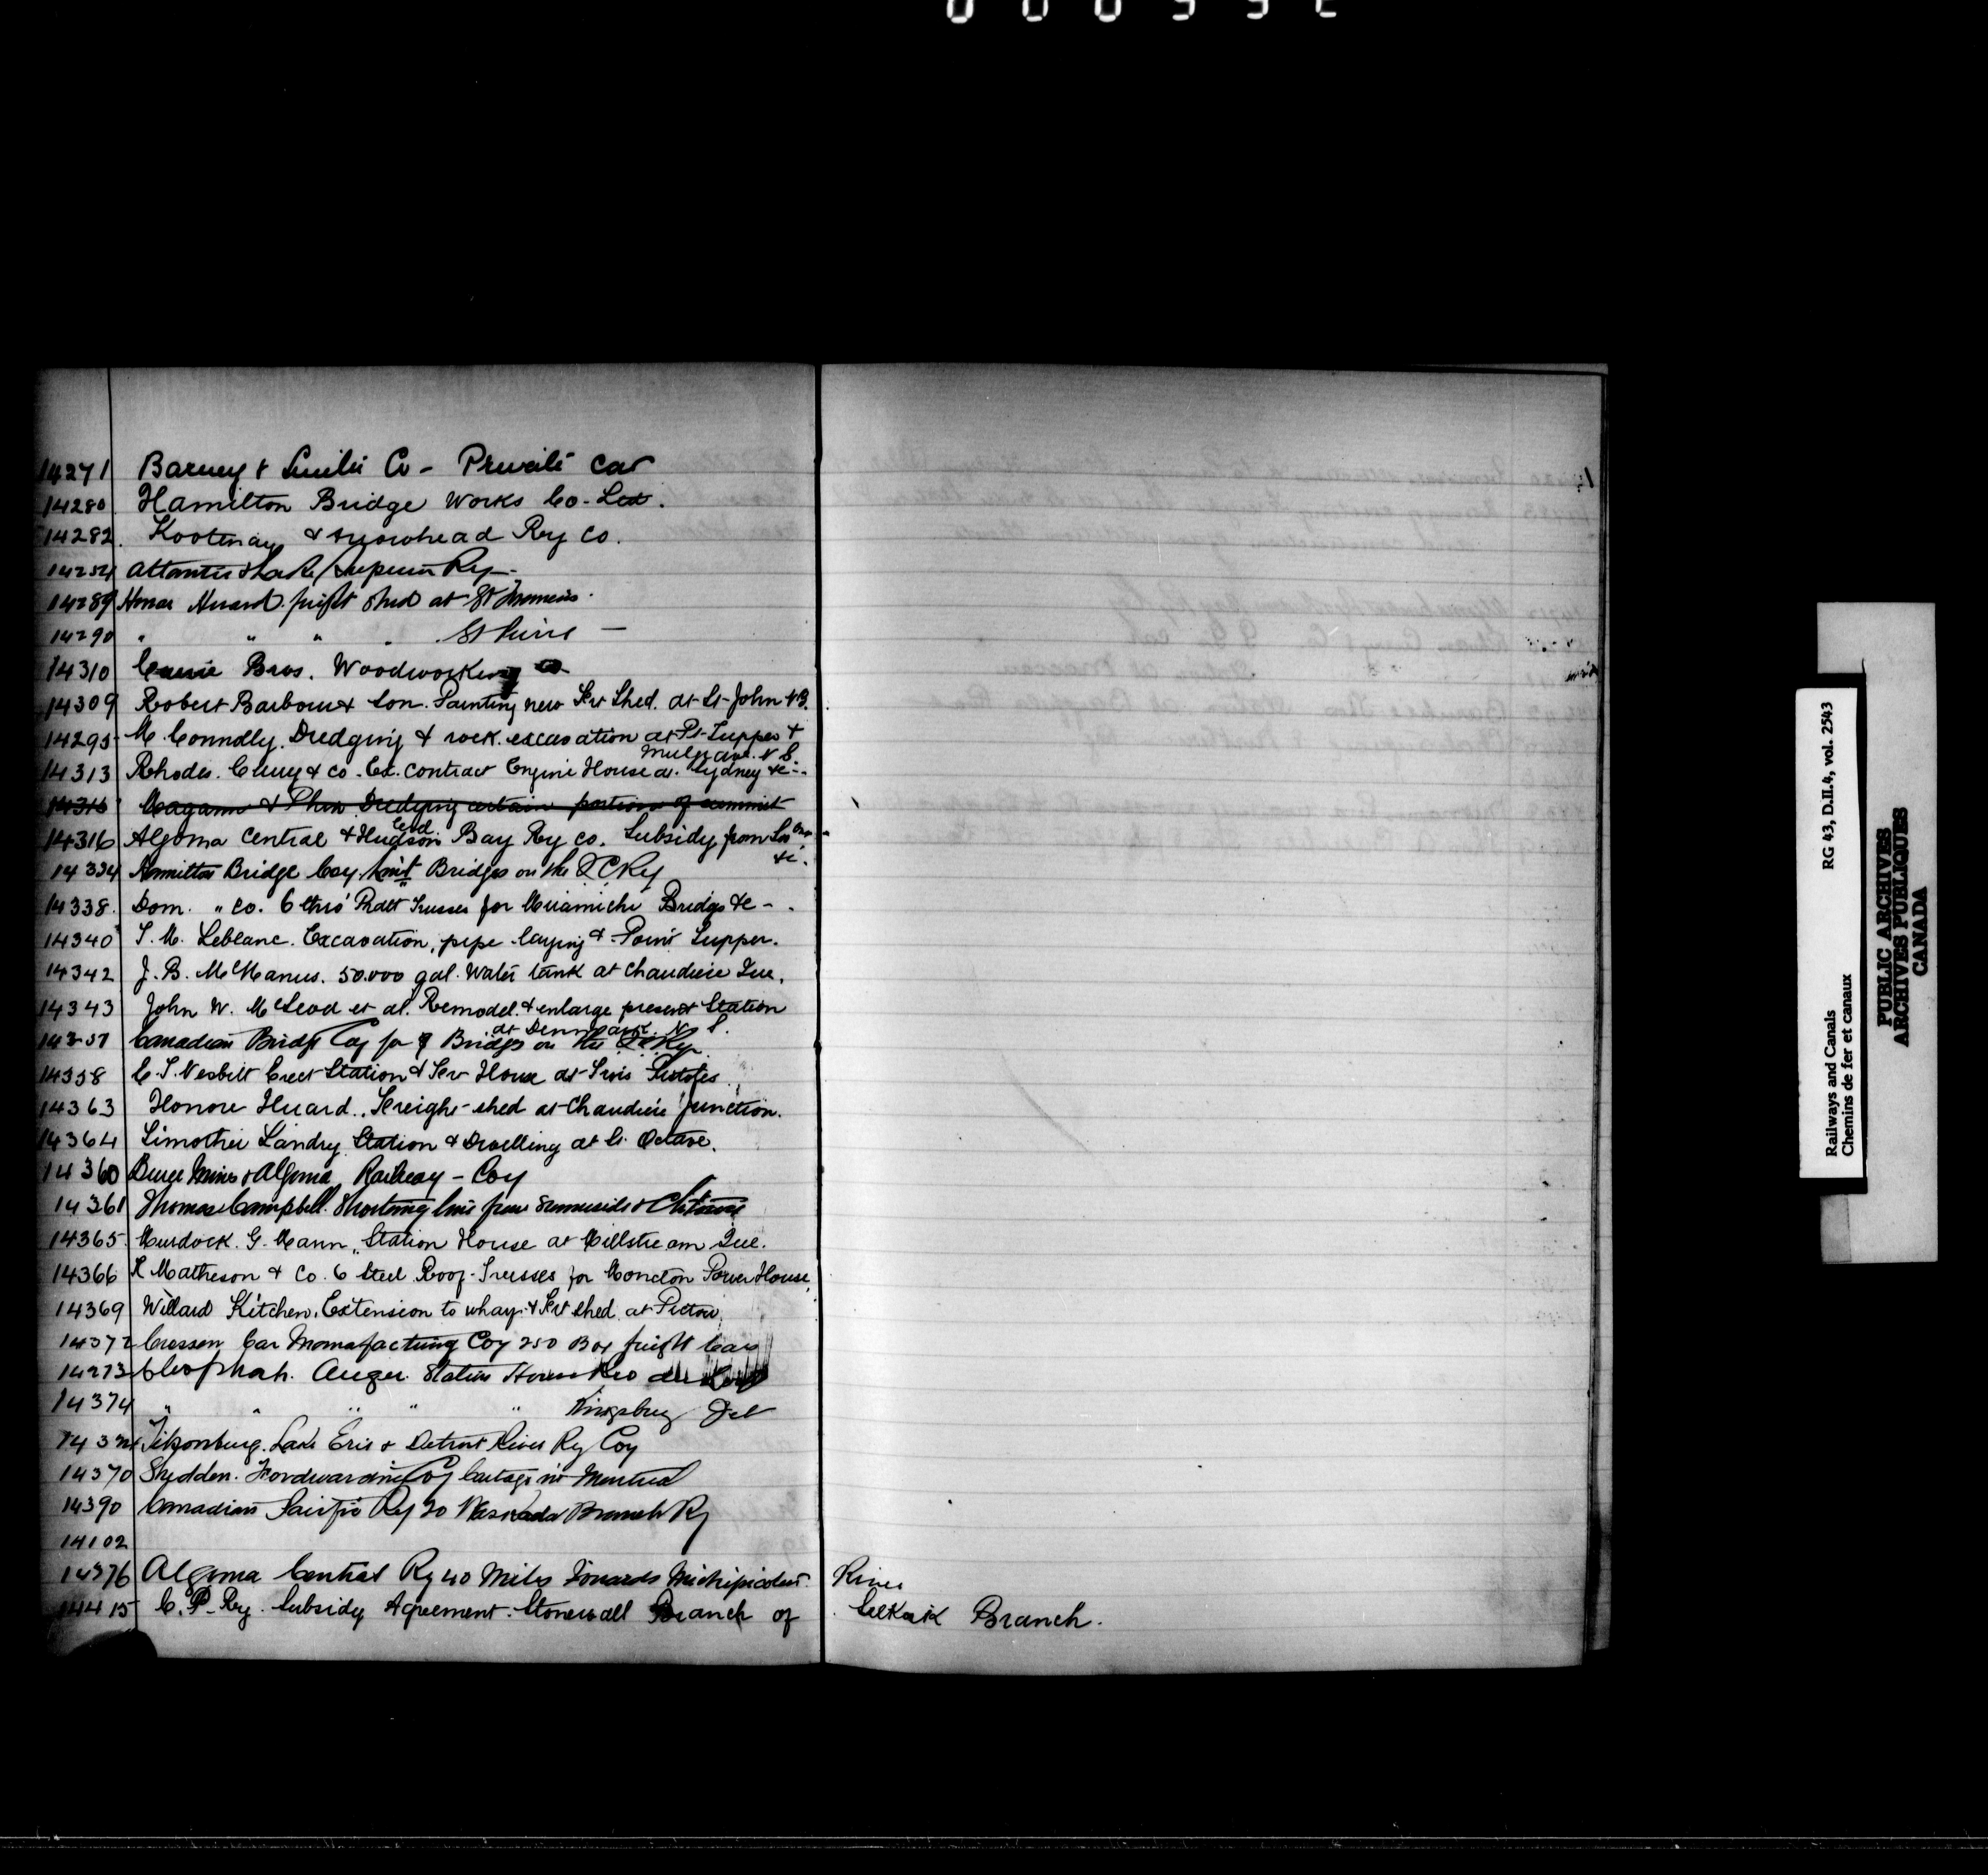 14271 Barney & Smith Co - Private Car
14280 Hamilton Bridge Works Co. Ltd.
14282. Kootenay & Arrowhead Ry Co.
Atlantic & Lake Superior Ry.
14289 Honore Huard freight shed at St
14290 " " " " St
14310 Bros. Woodworking Co
14309 Robert Barbour & Son. Painting new Frt Shed. at St. John N.B.
14295 M. Connolly. Dredging & rock excavation at Pt. Tupper &
Mulgrave. N.S.
14313 Rhodes. Curry & Co. Ex. contract Engine House at Sydney &c.
14316 Magann & Phin Dredging certain portions of summit
14316 Algoma Central & Hudson Bay Ry Co. Subsidy from
&c.
14334 Hamilton Bridge Coy Bridges on the I C Ry
14338. Dom. " Co. 6 thro' Trusses for Miramichi Bridge &c -
14340 T. M. Leblanc. Excavation, pipe laying & Point Tupper.
14342 J. B. McManus. 50.000 gal. Water tank at Chaudiere Que.
14343 John W. McLeod et al. Remodel & enlarge present Station
at Denmark N.S.
Canadian Bridge Coy for 9 Bridges on the I C Ry.
14358 C. T. Nesbitt Erect Station & Frt House at Trois Pistoles.
14363 Honore Huard. Freight-shed at Chaudiere Junction.
14364 Timothée Landry Station & Dwelling at St. Octave.
14360 Bruce Mines & Algoma Railway - Coy
14361 Thomas Campbell. Shortening line from Summerside & Ch'town
14365. Murdock. G. Mann, Station House at Millstream Que.
14366 K Matheson & Co. 6 Steel Roof-Trusses for Moncton Power House
14369 Willard Kitchen. Extension to wharf & Frt shed at Pictou
14372 Crossen Car Manufacturing Coy 250 Box freight Cars
14273 Cleophas. Auger. Station House
14374 " " " " " Kingsbury Jct
Tilsonburg. Lake Erie & Detroit River Ry Coy
14370 Shedden. Forwarding Coy Cartage in Montreal
14390 Canadian Pacific Ry 20 Waskada Branch Ry
14102
14376 Algoma Central Ry 40 Miles Towards Michipicoten River
14415 C. P. Ry. Subsidy Agreement. Stonewall Branch of Selkirk Branch.
Railways and Canals RG 43, D.II.4, vol. 2543
Chemins de fer et canaux
PUBLIC ARCHIVES
ARCHIVES PUBLIQUES
CANADA